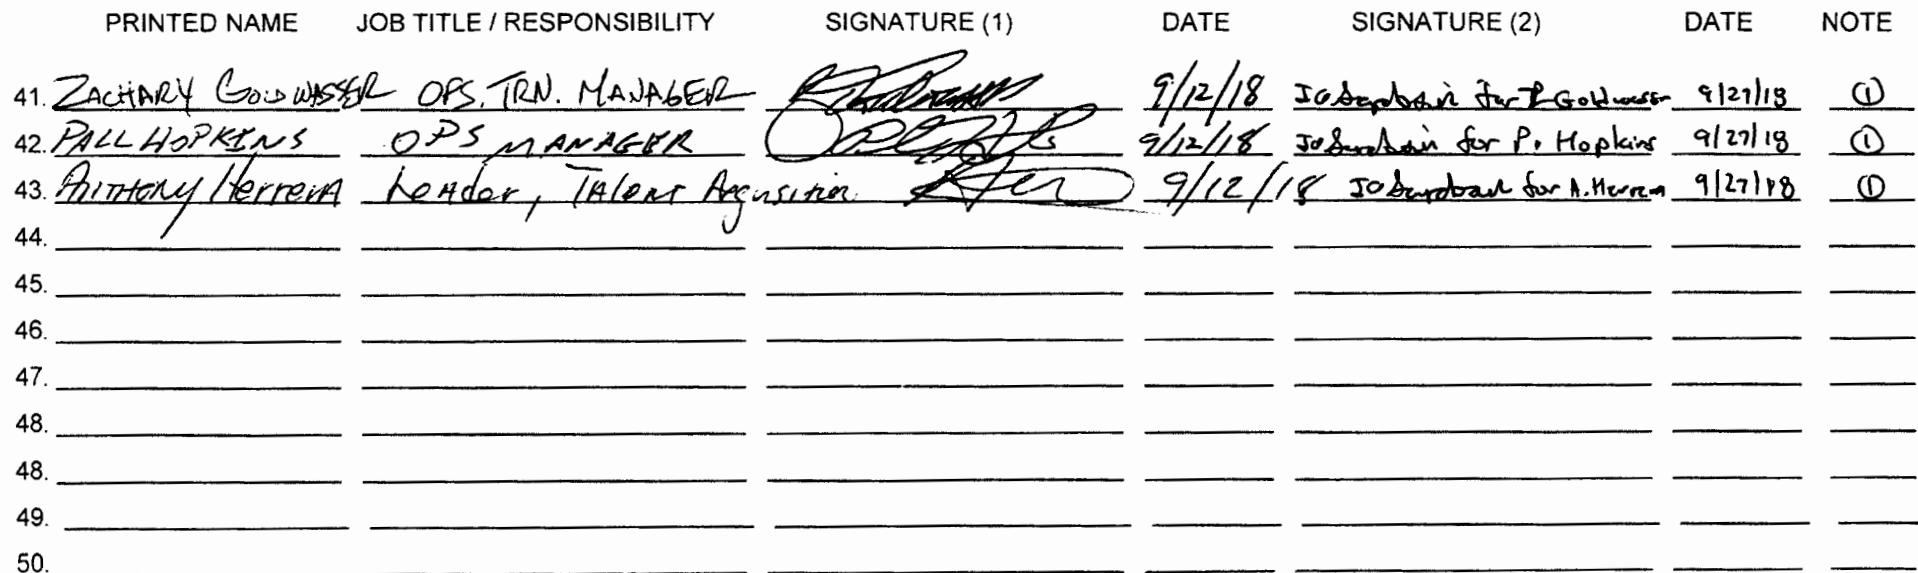 PRINTED NAME JOB TITLE / RESPONSIBILITY SIGNATURE (1) DATE SIGNATURE (2) DATE NOTE
41. ZACHARY GOLDWASSER OPS. TRN. MANAGER 9/12/18 for Z Goldwasser 9/27/18 ①
42. PALL HOPKINS OPS MANAGER 9/12/18 for P. Hopkins 9/27/18 ①
43. Anthony Herrera Leader, Talent Acquisition 9/12/18 for A. Herrera 9/27/18 ①
44.
45.
46.
47.
48.
48.
49.
50.